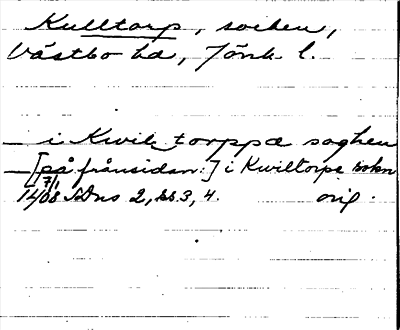 Kulltorp, socken,
Västbo hd, Jönk l.
i Kwile torppa soghen
[på frånsidan:] i Kwiltorpa sokn
14 7/1 08 SDns 2, bl. 3, 4. orig.